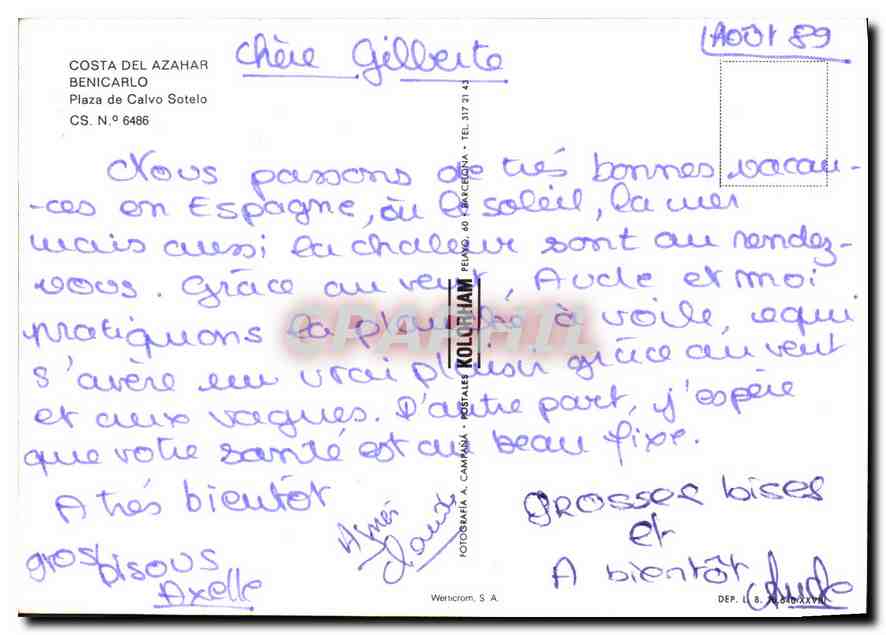 Août 89
Chère Gilberte
COSTA DEL AZAHAR
BENICARLO
Plaza de Calvo Sotelo
CS. N.º 6486
Nous passons de très bonnes vacan-
-ces en Espagne, où le soleil, la mer
mais aussi la chaleur sont au rendez-
vous. Grâce au vent, Aude et moi
pratiquons la planche à voile, ce qui
s'avère un vrai plaisir grâce au vent
et aux vagues. D'autre part, j'espère
que votre santé est au beau fixe.
A très bientôt
gros bisous
Axelle
Grosses bises
et
A bientôt
Aude
FOTOGRAFIA A. CAMPAÑA • POSTALES KOLORHAM PELAYO, 60 • BARCELONA • TEL. 317 21 43
Werticrom, S. A.
DEP. L. B.
CPAPHIL